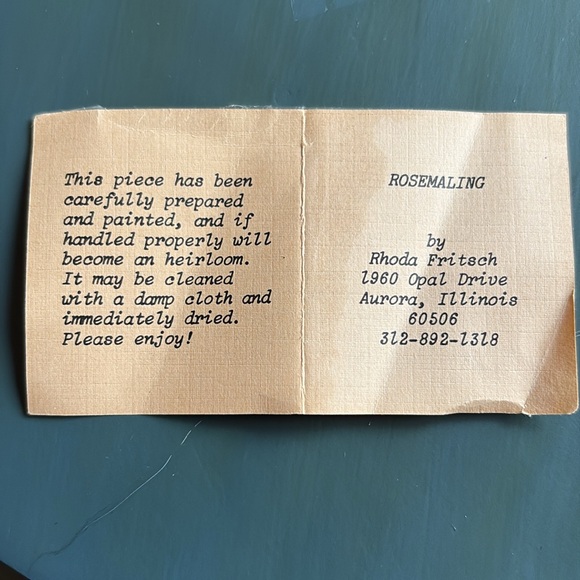 This piece has been
carefully prepared
and painted, and if
handled properly will
become an heirloom.
It may be cleaned
with a damp cloth and
immediately dried.
Please enjoy!
ROSEMALING
by
Rhoda Fritsch
1960 Opal Drive
Aurora, Illinois
60506
312-892-1318